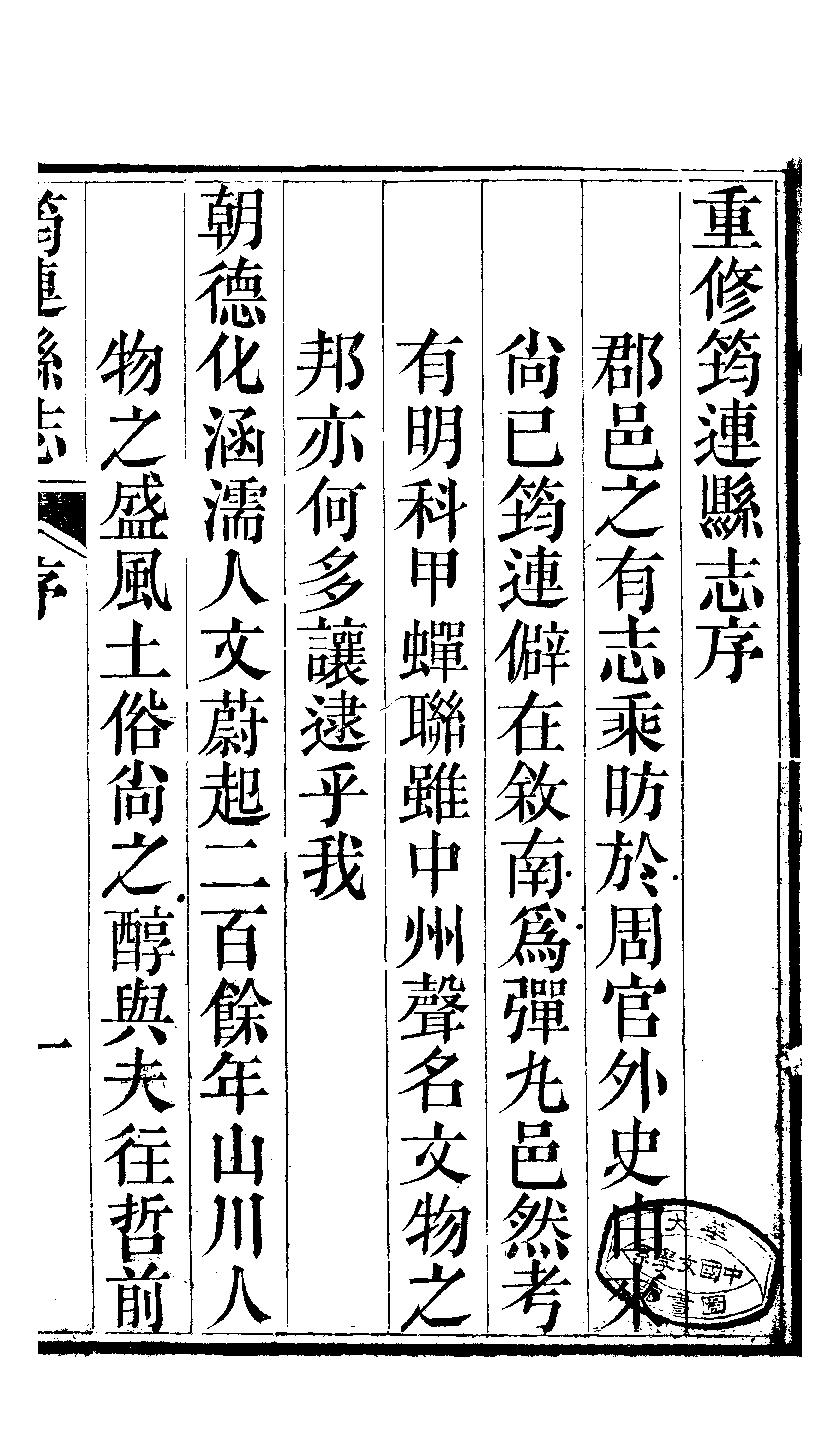 重修筠連縣志序
郡邑之有志乘昉於周官外史由來
尙已筠連僻在敘南爲彈丸邑然考
有明科甲蟬聯雖中州聲名文物之
邦亦何多讓逮乎我
朝德化涵濡人文蔚起二百餘年山川人
物之盛風土俗尙之醇與夫往哲前
筠連縣志
序
一
中國文學系
圖書